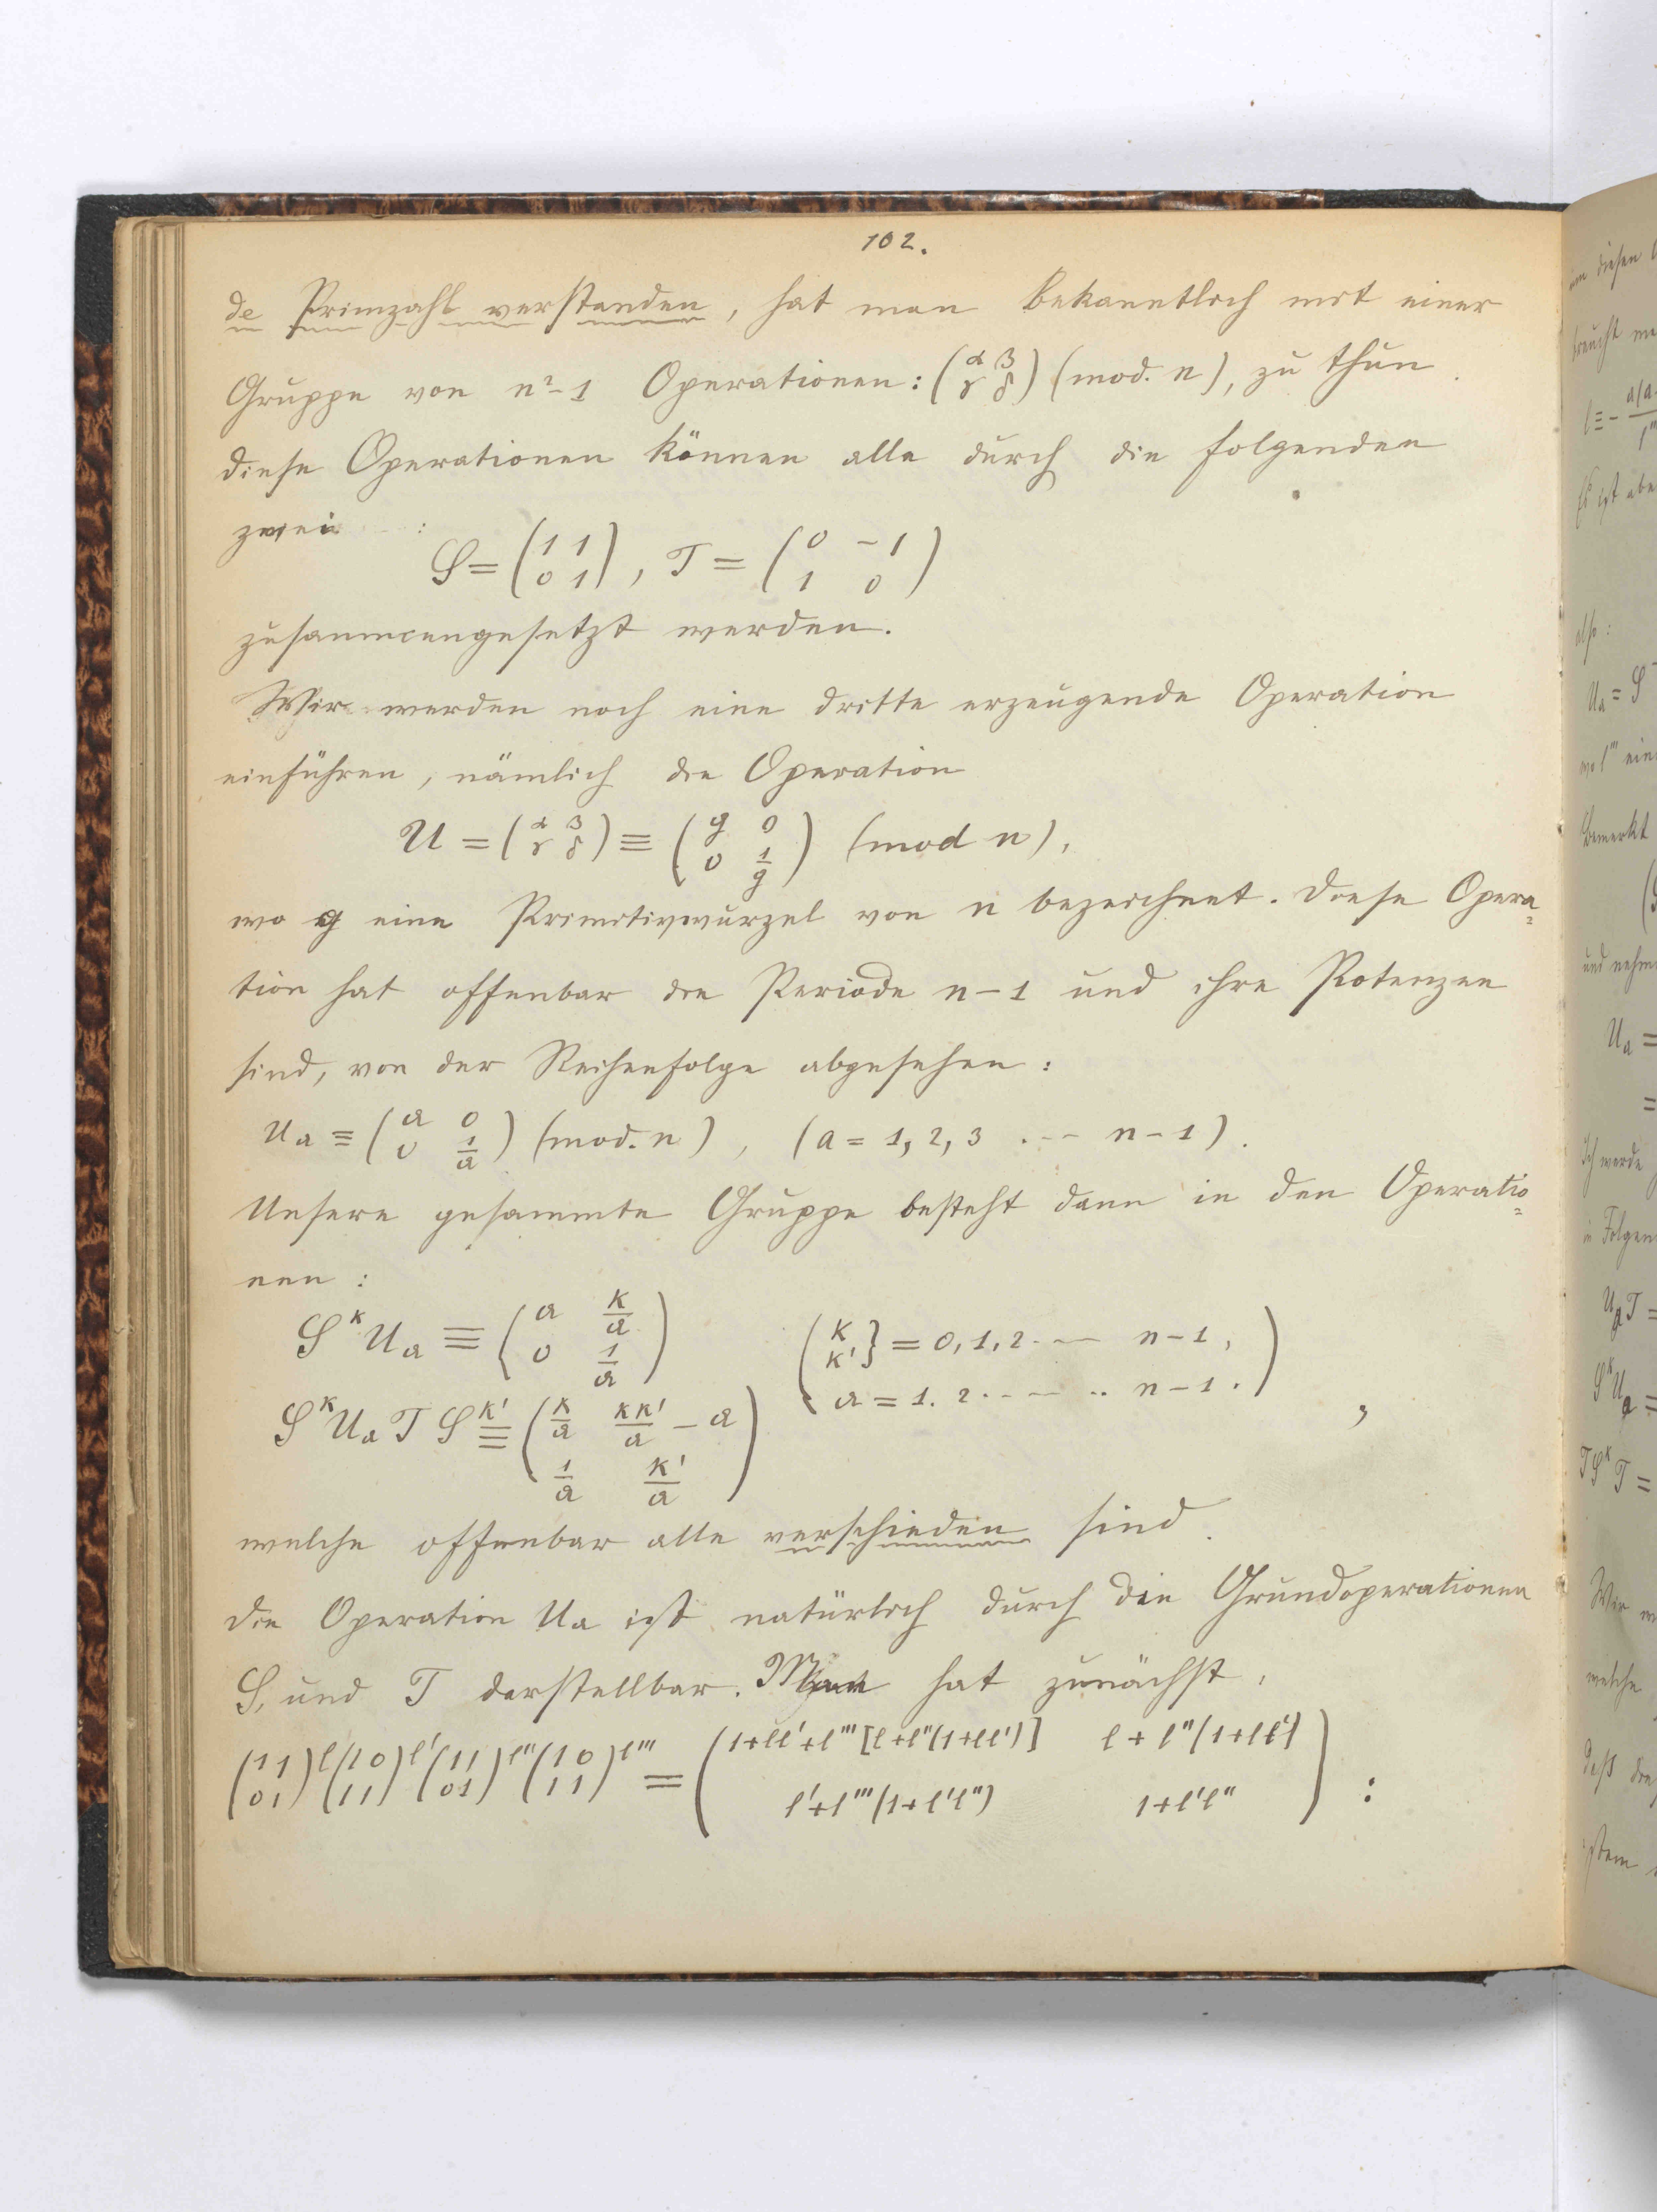 102.
de Primzahl verstanden, hat man bekanntlich mit einer
Gruppe von n²-1 Operationen: (α β / γ δ) (mod. n), zu thun.
diese Operationen können alle durch die folgenden
zwei :
S = (1 1 / 0 1), T = (0 -1 / 1 0)
zusammengesetzt werden.
Wir werden noch eine dritte erzeugende Operation
einführen, nämlich die Operation
U = (α β / γ δ) ≡ (g 0 / 0 1/g) (mod n),
wo g eine Primitivwurzel von n bezeichnet. Diese Opera=
tion hat offenbar die Periode n-1 und ihre Potenzen
sind, von der Reihenfolge abgesehen:
Uₐ ≡ (a 0 / 0 1/a) (mod. n), (a = 1, 2, 3 ... n-1).
Unsere gesammte Gruppe besteht dann in den Operatio=
nen:
S^k Uₐ ≡ (a k/a / 0 1/a) (k k'} = 0, 1, 2 ... n-1,
S^k Uₐ T S^k' ≡ (k/a kk'/a - a / 1/a k'/a) a = 1. 2 ... n-1.) ,
welche offenbar alle verschieden sind.
Die Operation Uₐ ist natürlich durch die Grundoperationen
S, und T darstellbar. Man hat zunächst,
(1 1 / 0 1)^l (1 0 / 1 1)^l' (1 1 / 0 1)^l'' (1 0 / 1 1)^l''' = (1+ll'+l'''[l+l''(1+ll')] l+l''(1+ll') / l'+l'''(1+l'l'') 1+l'l'') :